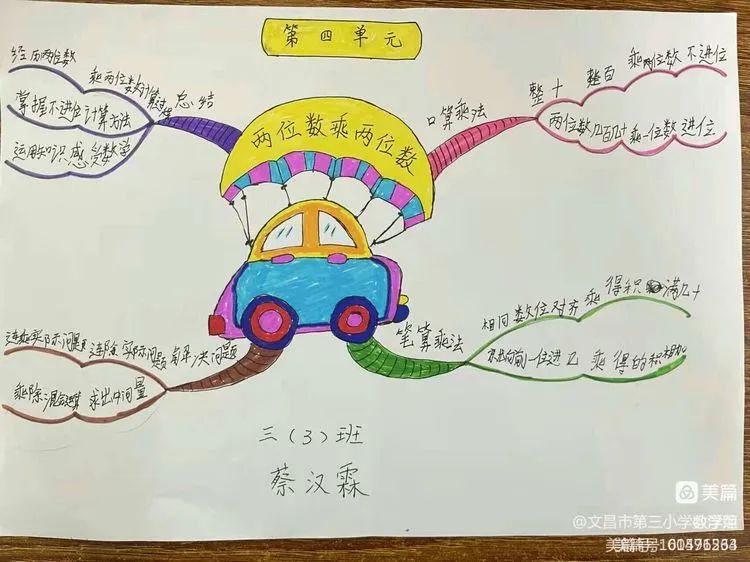 第四单元
两位数乘两位数
总结
经历两位数
乘两位数计算过程
掌握不进位计算方法
运用知识感受数学
口算乘法
整十 整百 乘两位数 不进位
两位数 几百几十 乘一位数 进位
笔算乘法
相同数位对齐 乘 得积 满几十
就向前一位进几 乘 得的积相加
解决问题
连乘实际问题 连除 实际问题
乘除混合运算 求出中间量
三(3)班
蔡汉霖
美篇
@文昌市第三小学
美篇号: